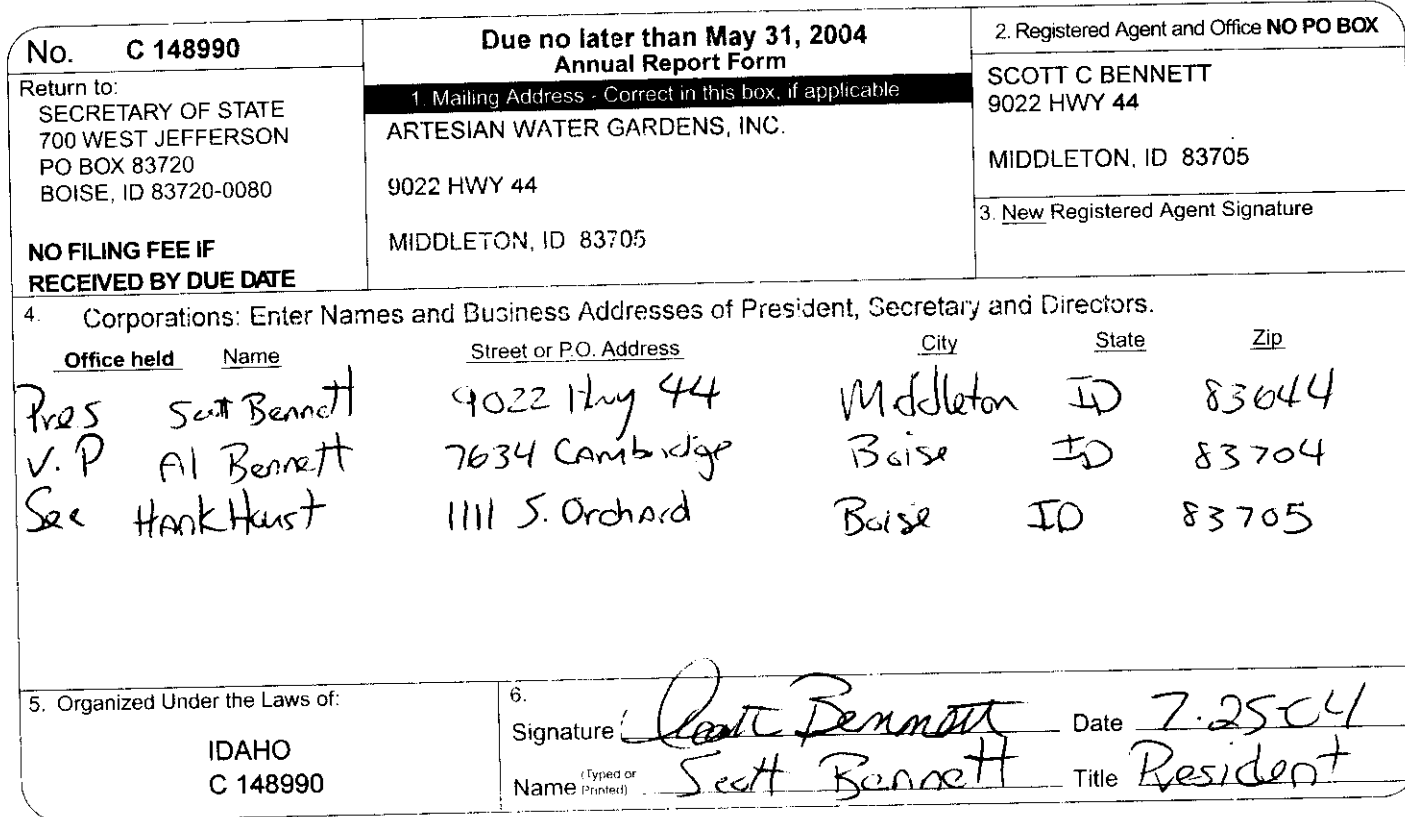 No. C 148990
Return to:
SECRETARY OF STATE
700 WEST JEFFERSON
PO BOX 83720
BOISE, ID 83720-0080
NO FILING FEE IF
RECEIVED BY DUE DATE
Due no later than May 31, 2004
Annual Report Form
1. Mailing Address - Correct in this box, if applicable
ARTESIAN WATER GARDENS, INC.
9022 HWY 44
MIDDLETON, ID 83705
2. Registered Agent and Office NO PO BOX
SCOTT C BENNETT
9022 HWY 44
MIDDLETON, ID 83705
3. New Registered Agent Signature
4. Corporations: Enter Names and Business Addresses of President, Secretary and Directors.
Office held Name Street or P.O. Address City State Zip
Pres Scott Bennett 9022 Hwy 44 Middleton ID 83644
V.P Al Bennett 7634 Cambridge Boise ID 83704
Sec Hank 1111 S. Orchard Boise ID 83705
5. Organized Under the Laws of:
IDAHO
C 148990
6.
Signature Scott Bennett Date 7.25-04
Name (Typed or Printed) Scott Bennett Title President